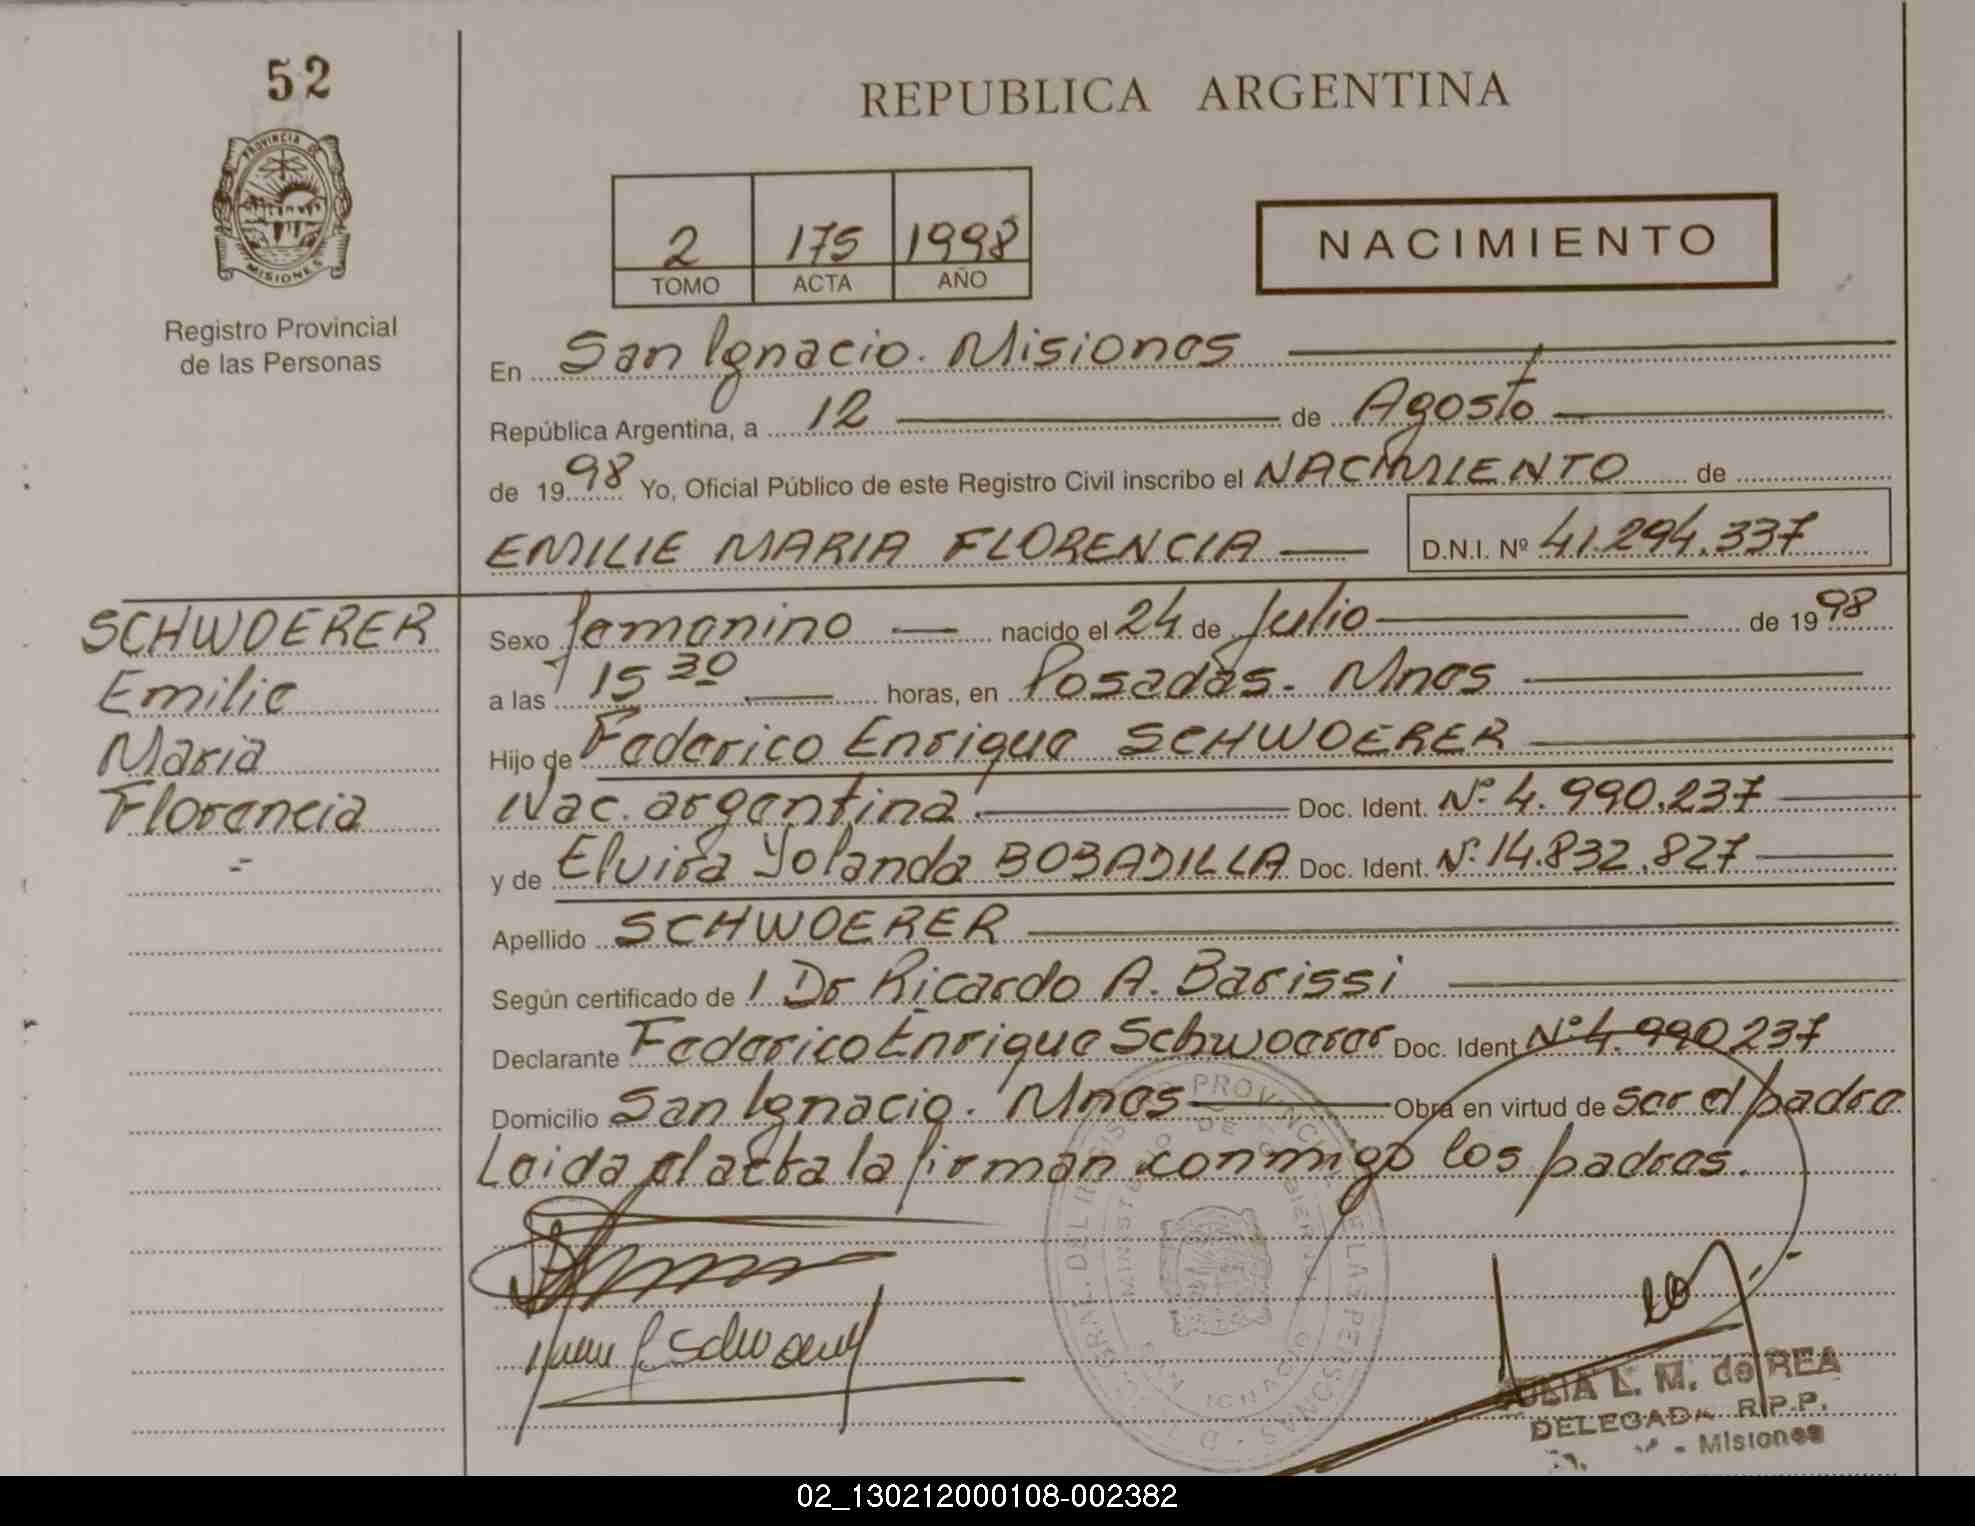 52
REPUBLICA ARGENTINA
PROVINCIA DE
MISIONES
Registro Provincial
de las Personas
2 175 1998
TOMO ACTA AÑO
NACIMIENTO
En San Ignacio. Misiones
República Argentina, a 12 de Agosto
de 1998 Yo, Oficial Público de este Registro Civil inscribo el NACIMIENTO de
EMILIE MARIA FLORENCIA D.N.I. Nº 41.294.337
SCHWOERER
Emilie
Maria
Florencia
Sexo femenino nacido el 24 de Julio de 1998
a las 15 30 horas, en Posadas - Mnes
Hijo de Federico Enrique SCHWOERER
Nac. argentina Doc. Ident. Nº 4.990.237
y de Elvira Yolanda BOBADILLA Doc. Ident. Nº 14.832.827
Apellido SCHWOERER
Según certificado de 1 Dr Ricardo A. Barissi
Declarante Federico Enrique Schwoerer Doc. Ident Nº 4.990.237
Domicilio San Ignacio. Mnes Obra en virtud de ser el padre
Leida el acta la firman conmigo los padres.
L. M. de REA
DELEGADA R.P.P.
- Misiones
02_130212000108-002382